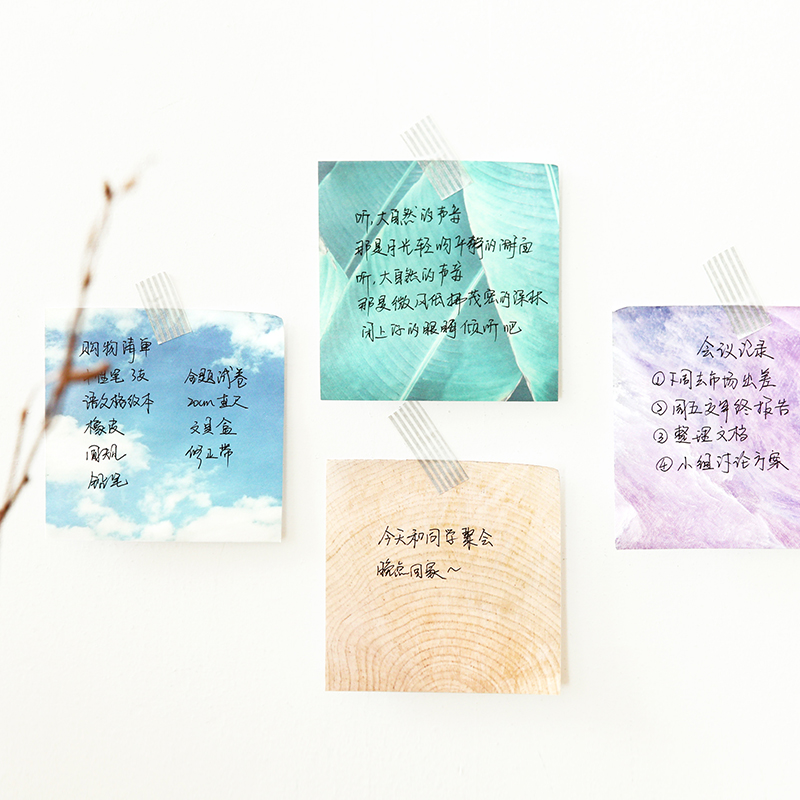 购物清单
中性笔3支 合题试卷
语文格纹本 20cm直尺
橡皮 文具盒
圆规 修正带
铅笔
听,大自然的声音
那是月光轻吻平静的湖面
听,大自然的声音
那是微风低拂茂密的深林
闭上你的眼睛倾听吧
今天和同学聚会
晚点回家~
会议记录
①下周去市场出差
②周五交年终报告
③整理文档
④小组讨论方案